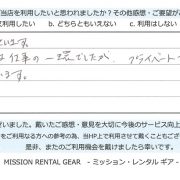 当店を利用したいと思われましたか？その他感想・ご要望が
利用したい b. どちらともいえない c. 利用はしない
います。
仕事の一環でしたが、プライベート
ます。
いました。戴いたご感想・意見を大切に今後のサービス向上
をご利用なる方への参考の為、当HP上で利用させて戴くこともござ
是非、またのご利用機会を戴けましたら幸いです。
MISSION RENTAL GEAR - ミッション・レンタル ギア -